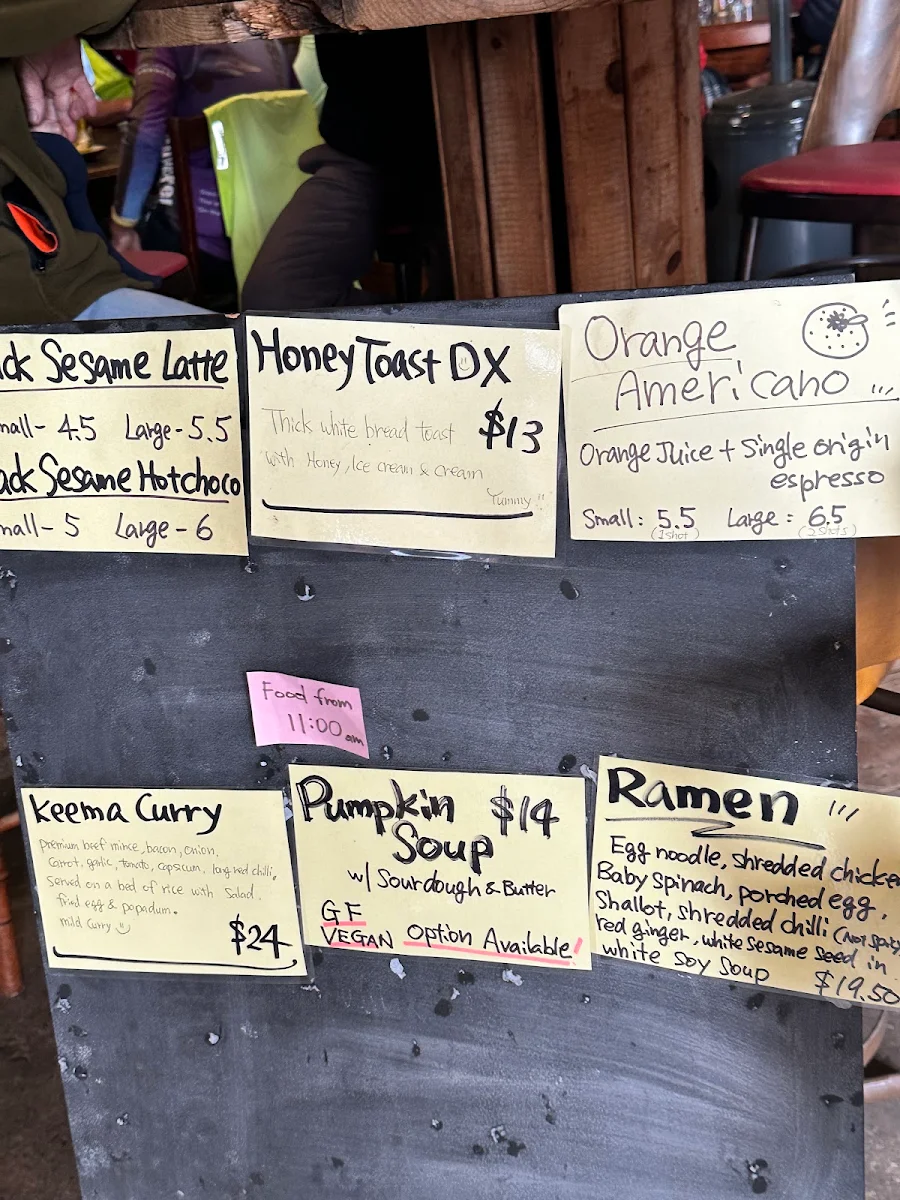 ck Sesame Latte
mall- 4.5 Large - 5.5
ack Sesame Hotchoco
mall- 5 Large - 6
Honey Toast DX
$13
Thick white bread toast
with Honey, Ice cream & cream
Yummy
Orange
Americano
Orange Juice + Single origin
espresso
Small: 5.5 Large: 6.5
(1shot) (2shots)
Food from
11:00 am
Keema Curry
premium beef mince, bacon, onion,
carrot, garlic, tomato, capsicum, long red chilli,
served on a bed of rice with salad.
fried egg & popadum.
mild curry
$24
Pumpkin $14
Soup
w/ Sourdough & Butter
GF
VEGAN Option Available!
Ramen
Egg noodle, shredded chicken
Baby spinach, porched egg,
Shallot, shredded chilli (Not spicy
red ginger, white sesame seed in
white soy soup $19.50